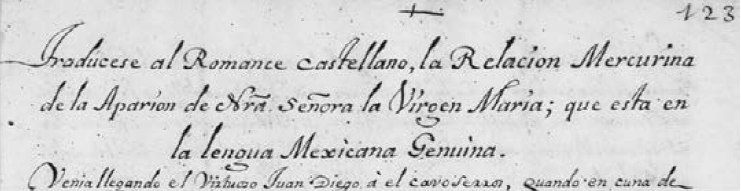 123
Traducese al Romance Castellano, la Relacion Mercurina
de la Aparion de Nrã. Señora la Virgen Maria; que esta en
la lengua Mexicana Genuina.
Venia llegando el Virtuozo Juan Diego à el cavo serron, quando en cuna de